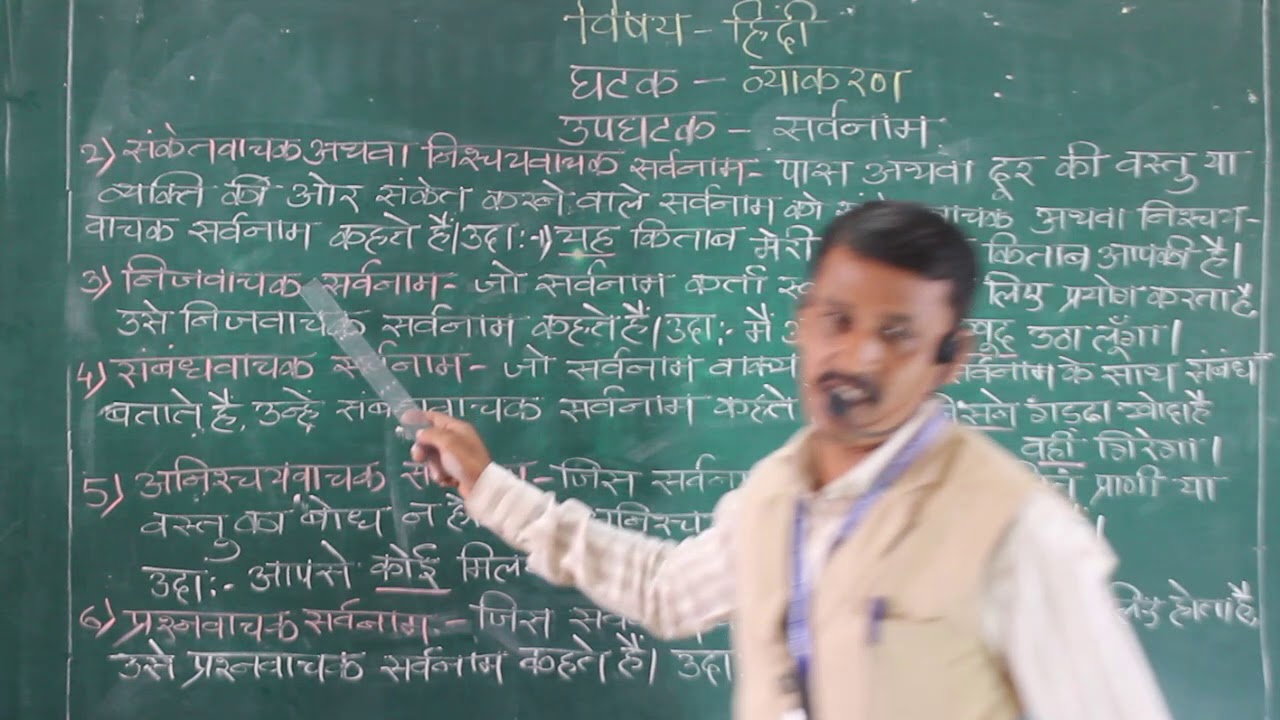 विषय - हिंदी
घटक - व्याकरण
उपघटक - सर्वनाम
2) संकेतवाचक अथवा निश्चयवाचक सर्वनाम - पास अथवा दूर की वस्तु या
व्यक्ति की ओर संकेत करने वाले सर्वनाम को वाचक अथवा निश्चय-
वाचक सर्वनाम कहते है। उदा:- 1) यह किताब मेरी किताब आपकी है।
3) निजवाचक सर्वनाम - जो सर्वनाम कर्ता लिए प्रयोग करता है,
उसे निजवाचक सर्वनाम कहते हैं। उदा: मैं खुद उठा लूँगा।
4) संबंधवाचक सर्वनाम - जो सर्वनाम वाक्य सर्वनाम के साथ संबंध
बताते है, उन्हें संबंधवाचक सर्वनाम कहते गड्ढा खोदा है
वही गिरेगा।
5) अनिश्चयवाचक - जिस प्राणी या
वस्तु का बोध न हो
उदा:- आपसे कोई
6) प्रश्नवाचक सर्वनाम - जिस लिए होता है,
उसे प्रश्नवाचक सर्वनाम कहते हैं। उदा